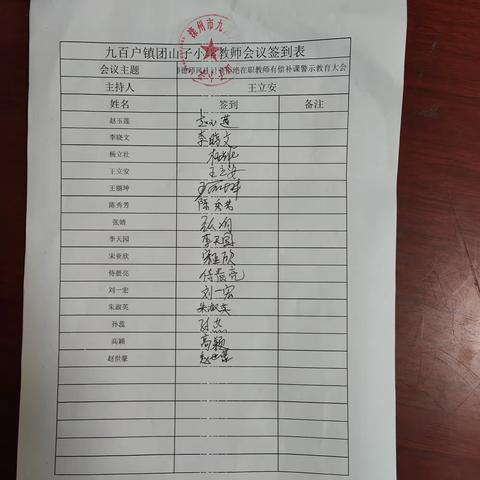 滦州市九
九百户镇团山子小学教师会议签到表
会议主题 在职教师有偿补课警示教育大会
主持人 王立安
姓名 签到 备注
赵玉莲 赵玉莲
李晓文 李晓文
杨立壮 杨立壮
王立安 王立安
王丽坤 王丽坤
陈秀芳 陈秀芳
张娟 张娟
李天园 李天园
宋亚欣 宋亚欣
佟晨亮 佟晨亮
刘一宏 刘一宏
朱淑英 朱淑英
孙蕊 孙蕊
高颖 高颖
赵世蒙 赵世蒙